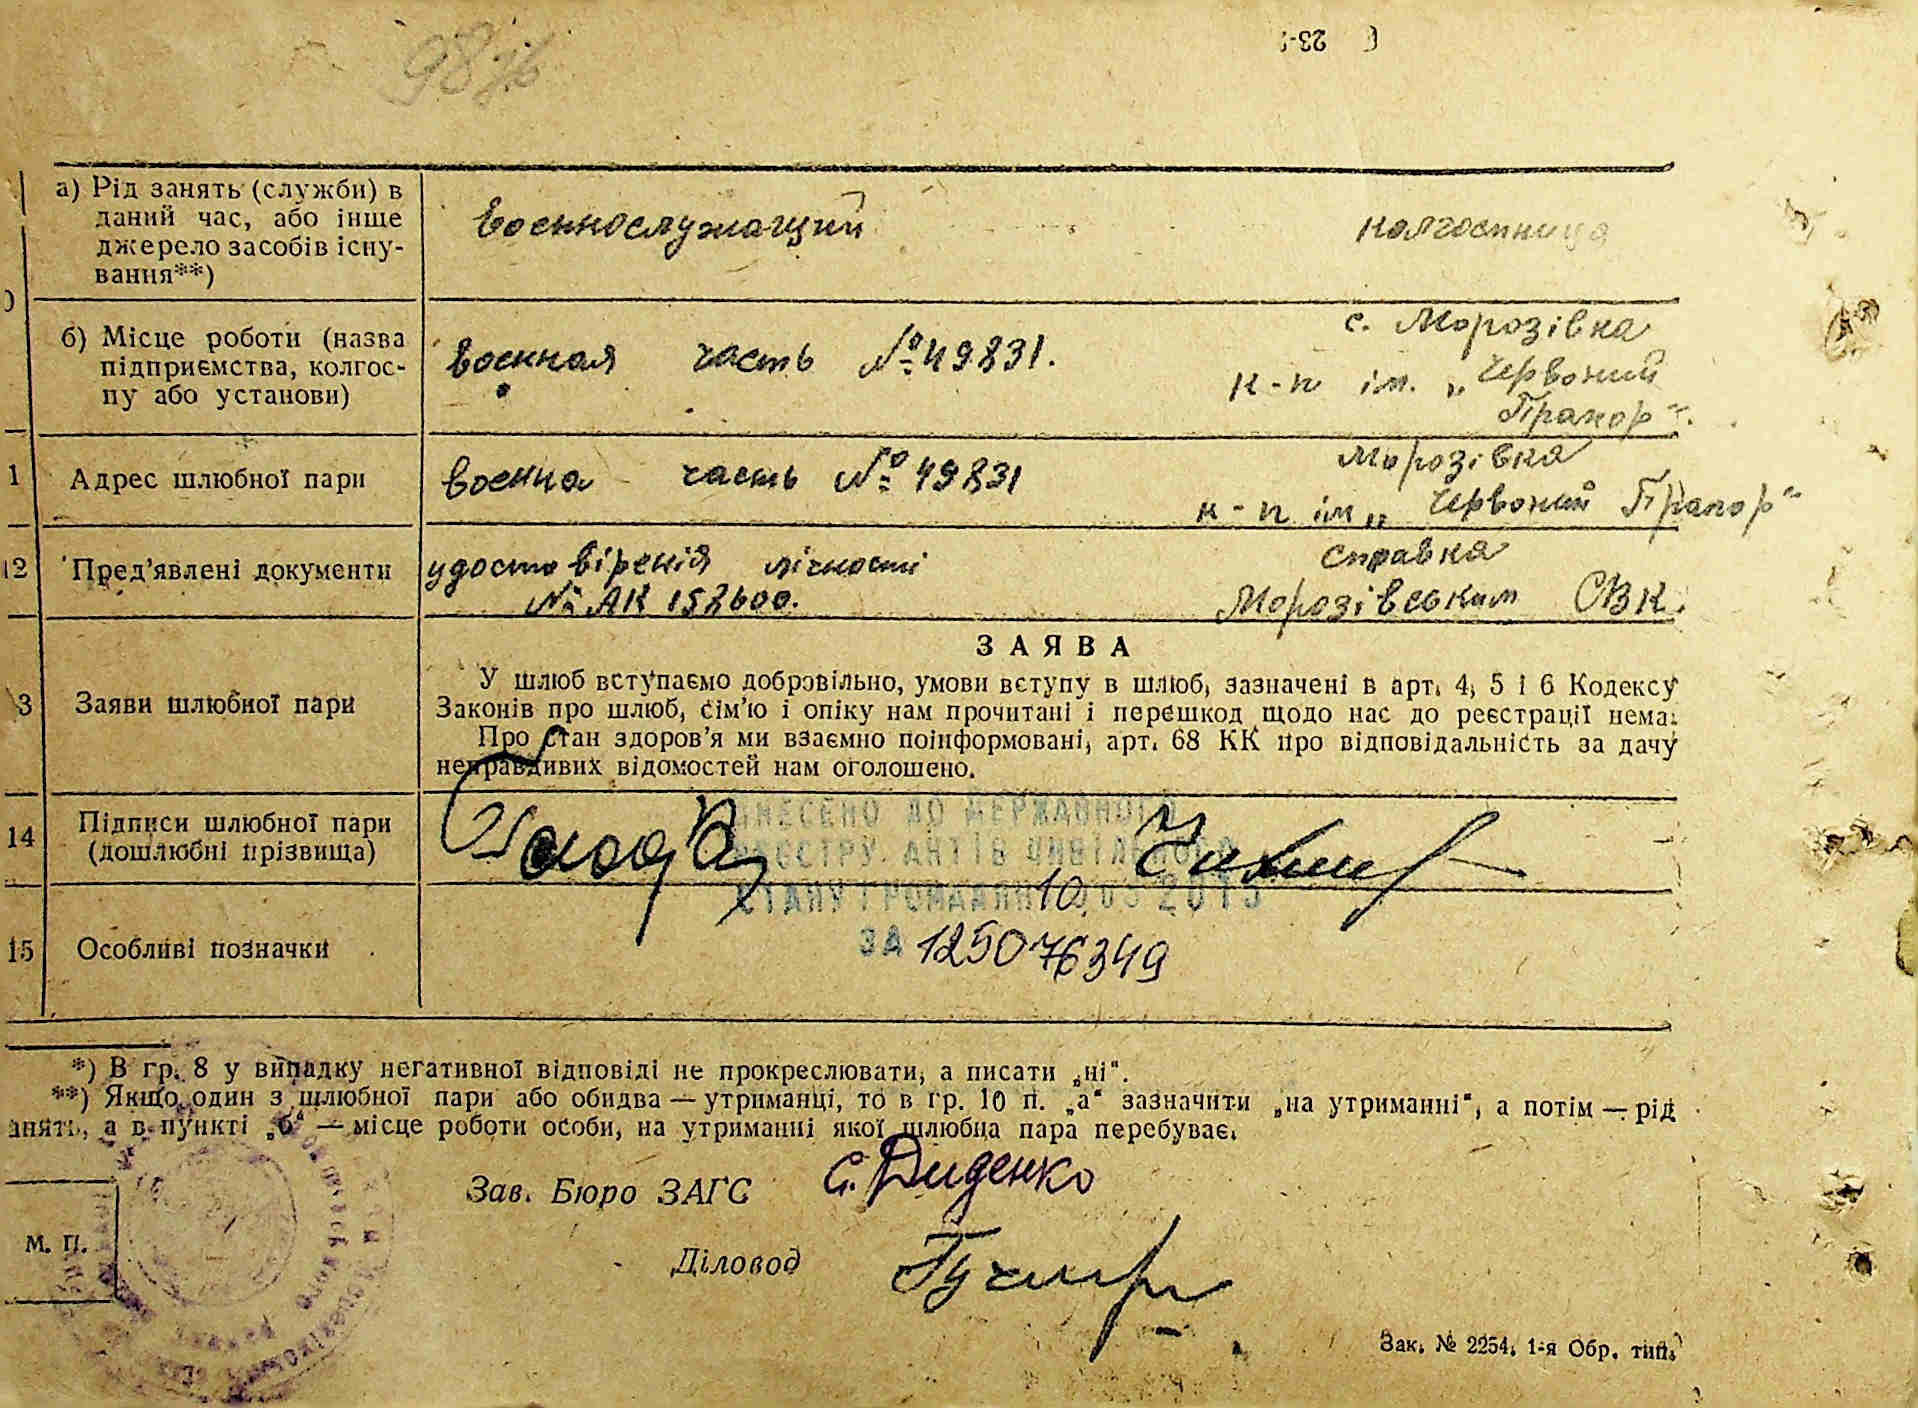 98
23-
а) Рід занять (служби) в
даний час, або інше
джерело засобів існу-
вання**)
Военнослужащий
колгоспница
б) Місце роботи (назва
підприємства, колгос-
пу або установи)
военная часть № 49831.
с. Морозівка
к-п ім. „Червоний
Прапор".
1 Адрес шлюбної пари
военна часть № 49831
Морозівка
к-п ім „Червоний Прапор"
12 Пред'явлені документи
удостовіренія лічності
№ АК 158600.
справка
Морозівським СВК.
3 Заяви шлюбної пари
ЗАЯВА
У шлюб вступаємо добровільно, умови вступу в шлюб, зазначені в арт. 4, 5 і 6 Кодексу
Законів про шлюб, сім'ю і опіку нам прочитані і перешкод щодо нас до реєстрації нема.
Про стан здоров'я ми взаємно поінформовані, арт. 68 КК про відповідальність за дачу
неправдивих відомостей нам оголошено.
14 Підписи шлюбної пари
(дошлюбні прізвища)
ВНЕСЕНО ДО ДЕРЖАВНОГО
РЕЄСТРУ АКТІВ ЦИВІЛЬНОГО
СТАНУ ГРОМАДЯН 10.
ЗА 125076349
15 Особливі позначки
*) В гр. 8 у випадку негативної відповіді не прокреслювати, а писати „ні".
**) Якщо один з шлюбної пари або обидва — утриманці, то в гр. 10 п. „а" зазначити „на утриманні", а потім — рід
занять, а в пункті „б" — місце роботи особи, на утриманні якої шлюбна пара перебуває.
Зав. Бюро ЗАГС С. Диденко
М. П.
Діловод
Зак. № 2254, 1-я Обр. тип.